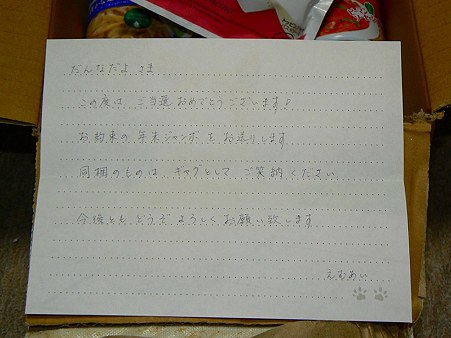 だんなだよ さま
この度は ご当選 おめでとうございます!
お約束の 年末ジャンボ を お送りします
同梱のものは ギャグとして ご笑納ください
今後とも どうぞ よろしく お願い致します
えむあい